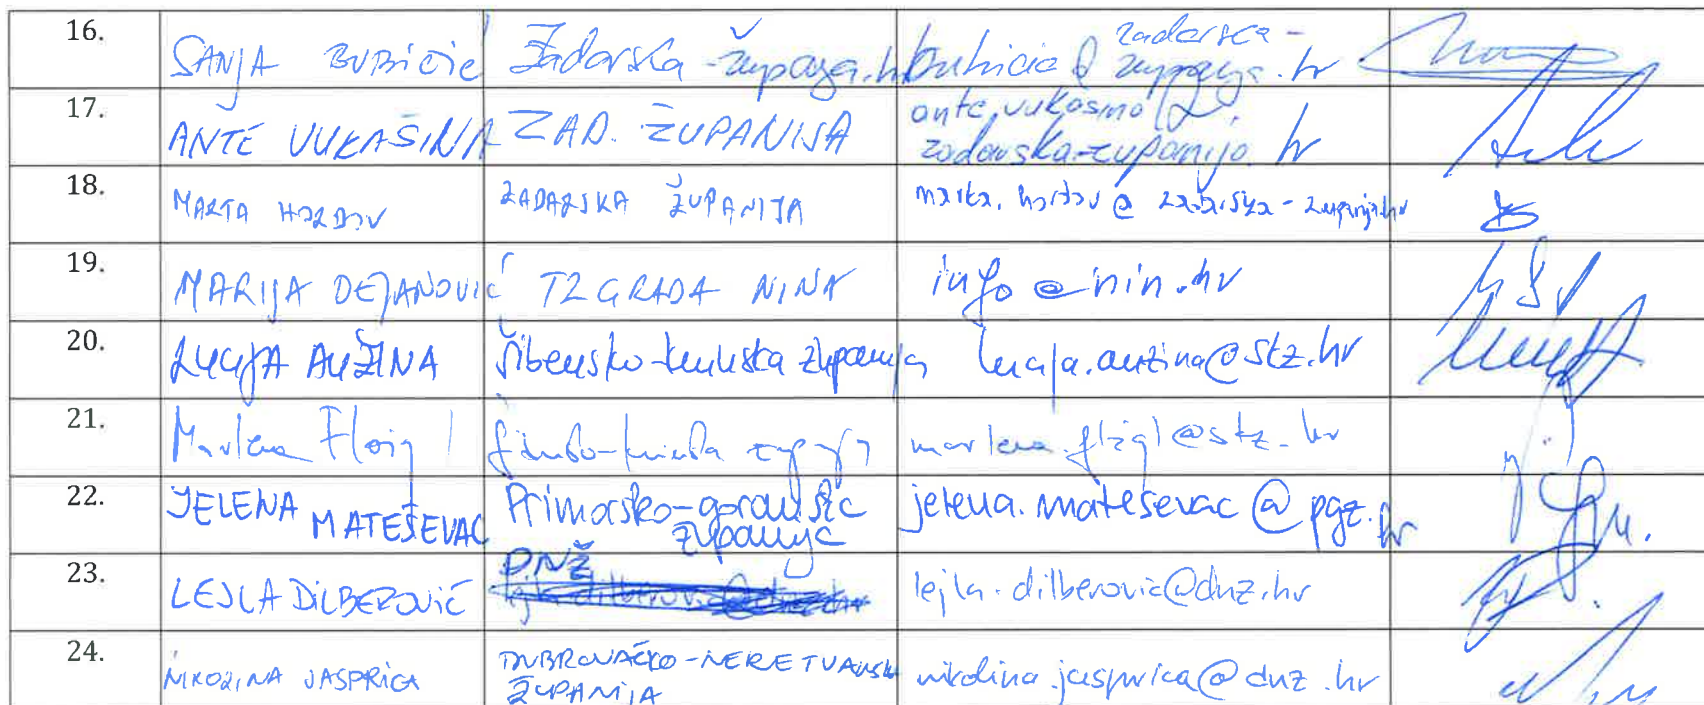 16. SANJA BUBIČIĆ Zadarska županija.hr bubicic@zadarska-zupanija.hr
17. ANTE VUKAŠINA ZAD. ŽUPANIJA ante.vukasina@zadarska-zupanija.hr
18. MARTA HORDOV ZADARSKA ŽUPANIJA marta.hordov@zadarska-zupanija.hr
19. MARIJA DEJANOVIĆ TZ GRADA NINA info@nin.hr
20. LUCIJA AUŽINA Šibensko-kninska županija lucija.auzina@skz.hr
21. Marlena Županija marlena.
22. JELENA MATEŠEVAC Primorsko-goranska županija jelena.matesevac@pgz.hr
23. LEJLA DILBEROVIĆ DNŽ lejla.dilberovic@dnz.hr
24. NIKOLINA JASPRICA DUBROVAČKO-NERETVANSKA ŽUPANIJA nikolina.jasprica@dnz.hr